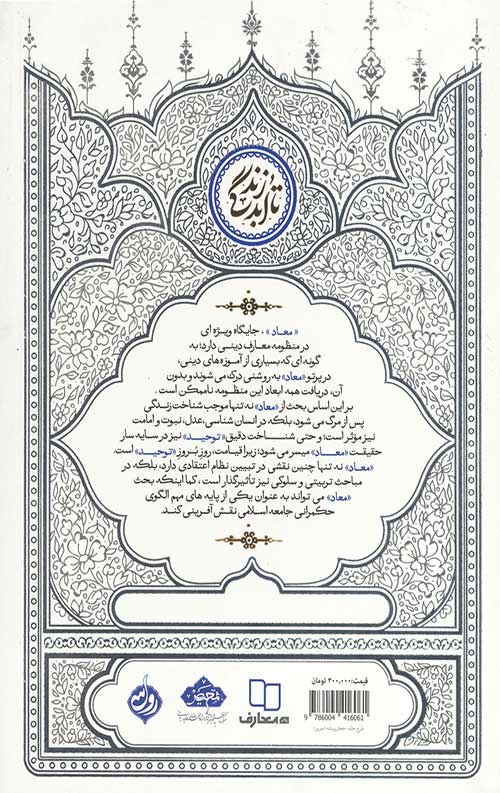 تا ابد زندگی
« معاد » ، جایگاه ویژه ای
در منظومه معارف دینی دارد؛ به
گونه ای که بسیاری از آموزه های دینی،
در پرتو «معاد» به روشنی درک می شوند و بدون
آن، دریافت همه ابعاد این منظومه ناممکن است .
بر این اساس بحث از «معاد» نه تنها موجب شناخت زندگی
پس از مرگ می شود، بلکه در انسان شناسی،عدل، نبوت و امامت
نیز مؤثر است؛ و حتی شناخت دقیق «توحید» نیز در سایه سار
حقیقت «معاد» میسر می شود؛ زیرا قیامت، روز بُروز «توحید» است.
«معاد» نه تنها چنین نقشی در تبیین نظام اعتقادی دارد، بلکه در
مباحث تربیتی و سلوکی نیز تأثیرگذار است ، کما اینکه بحث
«معاد» می تواند به عنوان یکی از پایه های مهم الگوی
حکمرانی جامعه اسلامی نقش آفرینی کند.
قیمت: ۳۰۰,۰۰۰ تومان
9 786004 416061
معارف